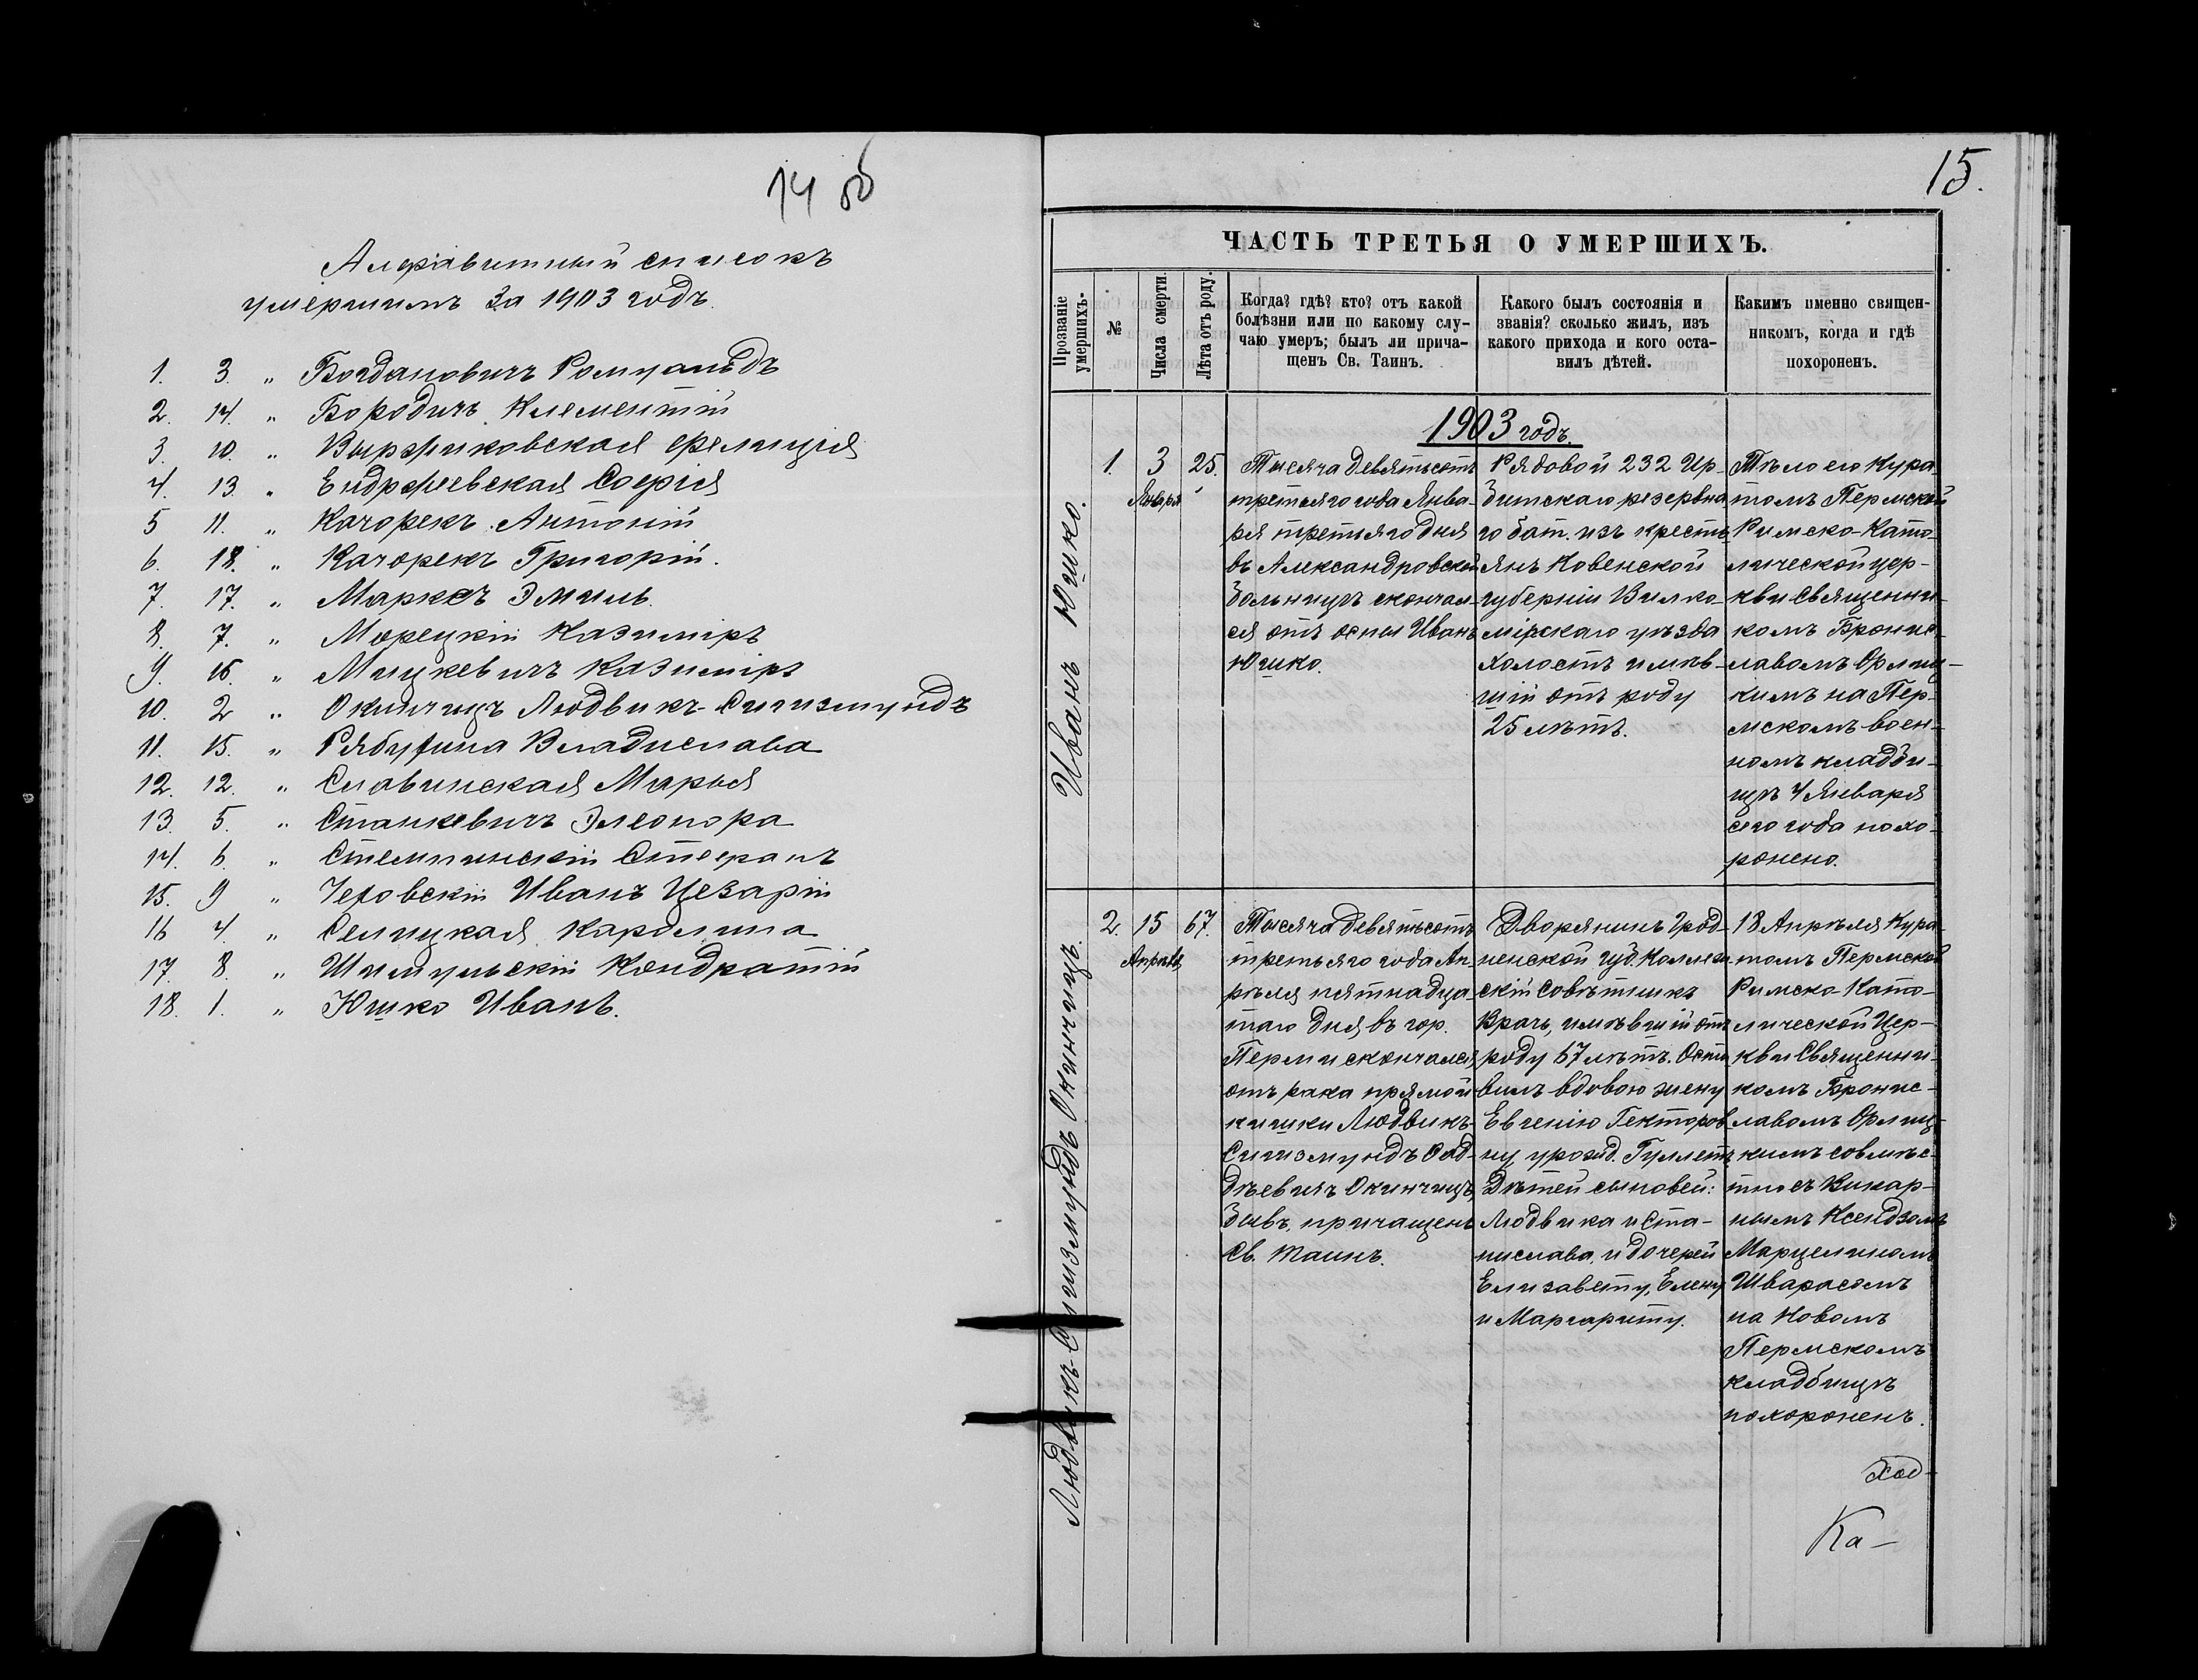 14 об
Алфавитный списокъ
умершимъ за 1903 годъ.
1. 3. „ Богдановичъ Ромуальдъ
2. 14. „ Бородичъ Клементій
3. 10. „ Выржиковская Фелиція
4. 13. „ Ендржеевская Софія
5 11. „ Качорекъ Антоній
6. 18. „ Качорекъ Григорій.
7. 17. „ Марксъ Эмиль.
8. 7. „ Морецкій Казиміръ
9. 16. „ Мицкевичъ Казиміръ
10. 2 „ Окинчицъ Людвикъ-Сигизмундъ
11. 15. „ Рябухина Владислава
12. 12. „ Славинская Марья
13. 5. „ Станкевичъ Элеонора
14. 6. „ Стемпинскій Стефанъ
15. 9 „ Чеховскій Иванъ Цезарій
16 4. „ Селицкая Каролина
17. 8. „ Шимульскій Кондратій
18. 1. „ Юшко Иванъ.
15.
ЧАСТЬ ТРЕТЬЯ О УМЕРШИХЪ.
Прозваніе
умершихъ.
№
Числа смерти.
Лѣта отъ роду.
Когда? гдѣ? кто? отъ какой
болѣзни или по какому слу-
чаю умеръ; былъ ли прича-
щенъ Св. Таинъ.
Какого былъ состоянія и
званія? сколько жилъ, изъ
какого прихода и кого оста-
вилъ дѣтей.
Какимъ именно священ-
никомъ, когда и гдѣ
похороненъ.
1903 годъ.
Иванъ Юшко.
1.
3
Января
25.
Тысяча девятьсотъ
третьяго года Янва-
ря третьяго дня
въ Александровской
больницѣ скончал-
ся отъ оспы Иванъ
Юшко.
Рядовой 232 Ир-
битскаго резервна
го бат. изъ кресть-
янъ Ковенской
губерніи Вилко-
мірскаго уѣзда
холостъ имѣв-
шій отъ роду
25 лѣтъ.
Тѣло его Кура-
томъ Пермской
Римско-Като-
лической цер-
кви Священни-
комъ Бронис-
лавомъ Орлиц-
кимъ на Пер-
мскомъ воен-
номъ кладби-
щѣ 4 Января
сего года похо-
ронено.
Людвикъ-Сигизмундъ Окинчицъ.
2.
15
Апрѣля
67.
Тысяча девятьсотъ
третьяго года Ап-
рѣля пятнадца-
таго дня, въ гор.
Перми скончался,
отъ рака прямой
кишки Людвикъ-
Сигизмундъ Фад-
дѣевичъ Окинчицъ,
бывъ причащенъ
Св. Таинъ.
Дворянинъ Грод-
ненской губ. Коллеж
скій Совѣтникъ
Врачъ, имѣвшій отъ
роду 67 лѣтъ. Оста
вилъ вдовою жену
Евгенію Гекторов-
ну урожд. Гуллетъ
Дѣтей сыновей:
Людвика и Ста-
нислава, и дочерей
Елизавету, Елену
и Маргариту.
18 Апрѣля Кура-
томъ Пермской
Римско-Като-
лической Цер-
кви Священни-
комъ Бронис-
лавомъ Орлиц-
кимъ совмѣс-
тно съ Викар-
нымъ Ксендзомъ
Марцелиномъ
Шварасомъ
на Новомъ
Пермскомъ
кладбищѣ
похороненъ.
Ка-